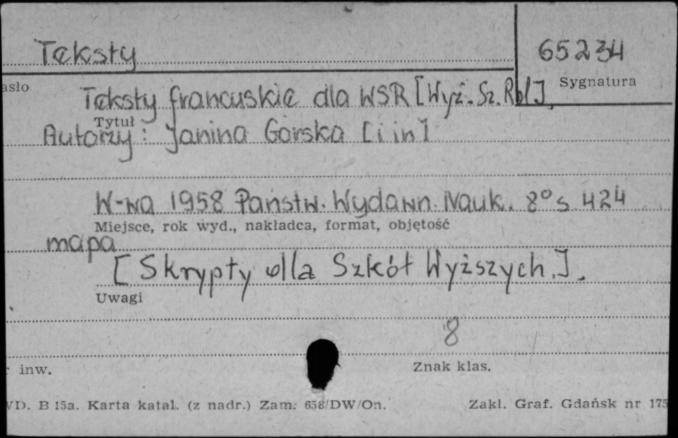 Teksty
65234
asło
Sygnatura
Teksty francuskie dla WSR [Wyż. Sz. Rol].
Tytuł
Autorzy: Janina Gorska [i in]
W-wa 1958 Państw. Wydawn. Nauk. 8° s 424
Miejsce, rok wyd., nakładca, format, objętość
mapa
[Skrypty dla Szkół Wyższych.].
Uwagi
8
r inw.
Znak klas.
WD. B 15a. Karta katal. (z nadr.) Zam. 658/DW/On.
Zakł. Graf. Gdańsk nr 175